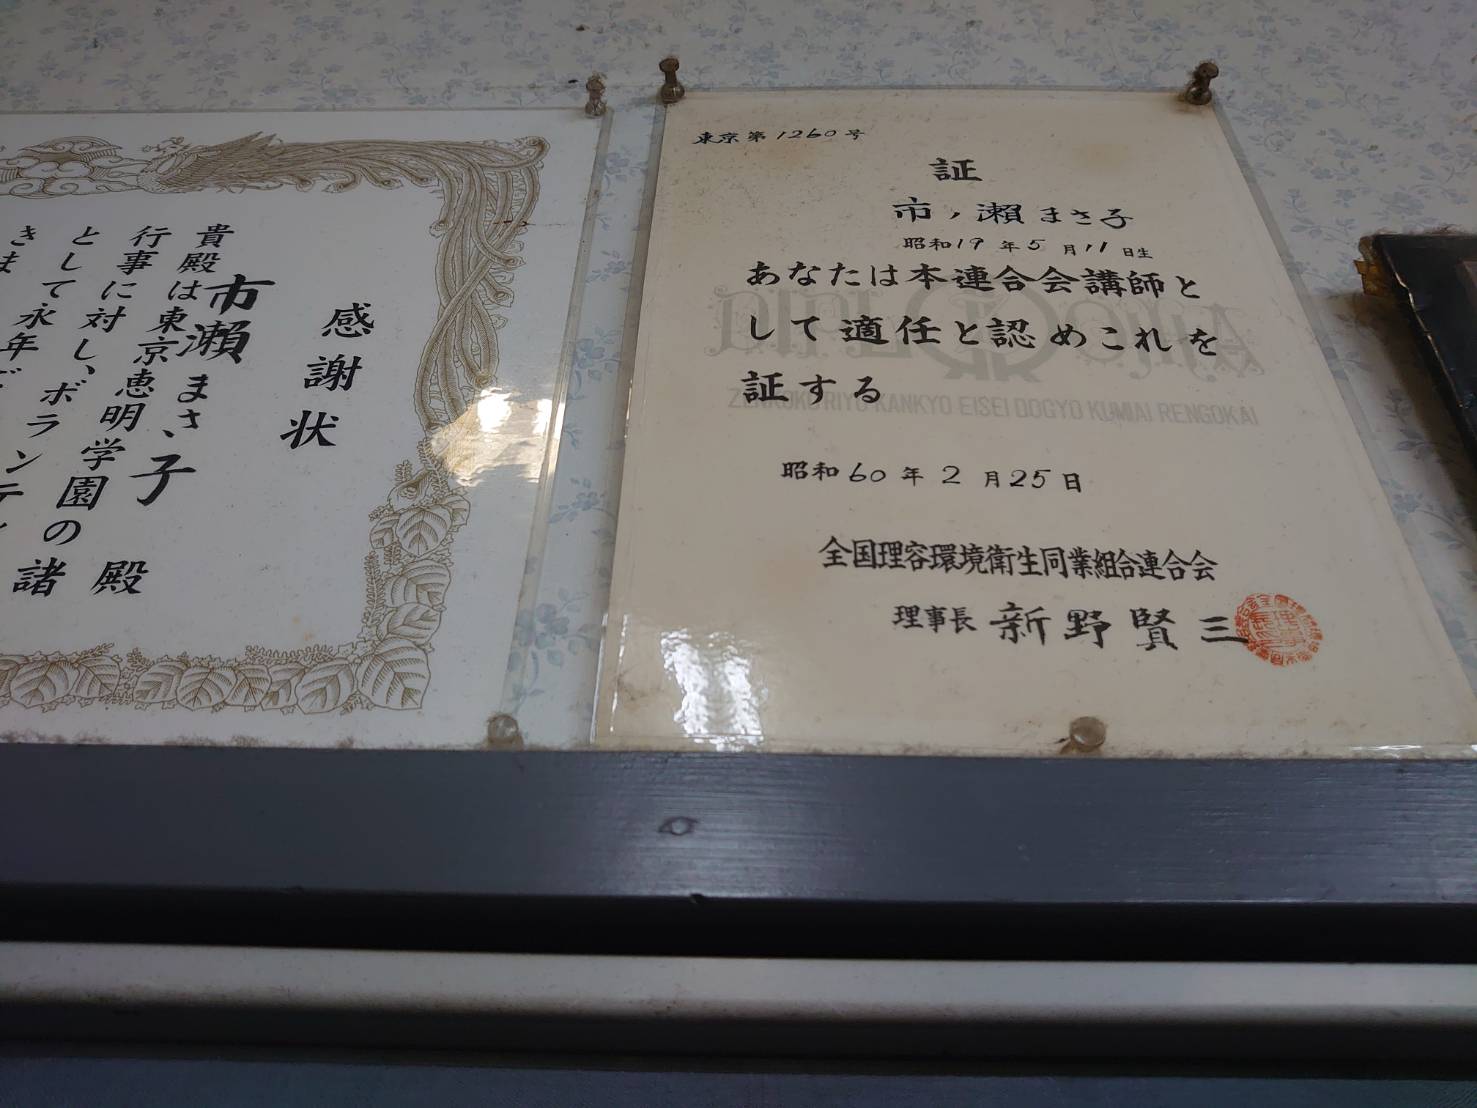 東京第1260号
証
市ノ瀬まさ子
昭和19年5月11日生
あなたは本連合会講師と
して適任と認めこれを
証する
ZENKOKU RIYO KANKYO EISEI DOGYO KUMIAI RENGOKAI
昭和60年2月25日
全国理容環境衛生同業組合連合会
理事長 新野賢三
感謝状
市瀬まさ子殿
貴殿は東京恵明学園の諸
行事に対し、ボランテ
として永年
きま